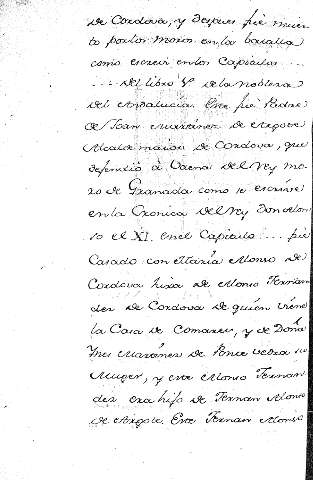 de Cordova, y despues fue muer
to por los moros en la batalla
como escreví en los Capitulos ...
... del libro 1º de la nobleza
del Andalucia. Este fué Padre
de Joan Martinez de Argote
Alcalde maior de Cordova, que
defendió á Vaena del Rey mo
ro de Granada como se escrive
en la Cronica del Rey Don Alon
so el XI. en el Capitulo ... fué
Casado con Maria Alonso de
Cordova hixa de Alonso Fernan
dez de Cordova de quien viene
la Casa de Comares, y de Doña
Ynes Martinez de Ponte vedra su
Muger, y este Alonso Fernan
dez era hijo de Fernan Alonso
de Argote. Este Fernan Alonso